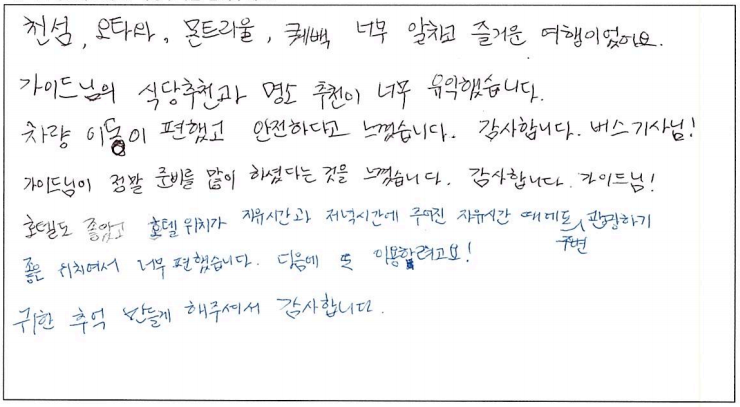 천섬, 오타와, 몬트리올, 퀘백 너무 알차고 즐거운 여행이었어요.
가이드님의 식당추천과 명소 추천이 너무 유익했습니다.
차량 이동이 편했고 안전하다고 느꼈습니다. 감사합니다. 버스기사님!
가이드님이 정말 준비를 많이 하셨다는 것을 느꼈습니다. 감사합니다. 가이드님!
호텔도 좋았고 호텔 위치가 자유시간과 저녁시간에 주어진 자유시간 때에도 주변 관광하기
좋은 위치여서 너무 편했습니다. 다음에 또 이용하려고요!
귀한 추억 만들게 해주셔서 감사합니다.